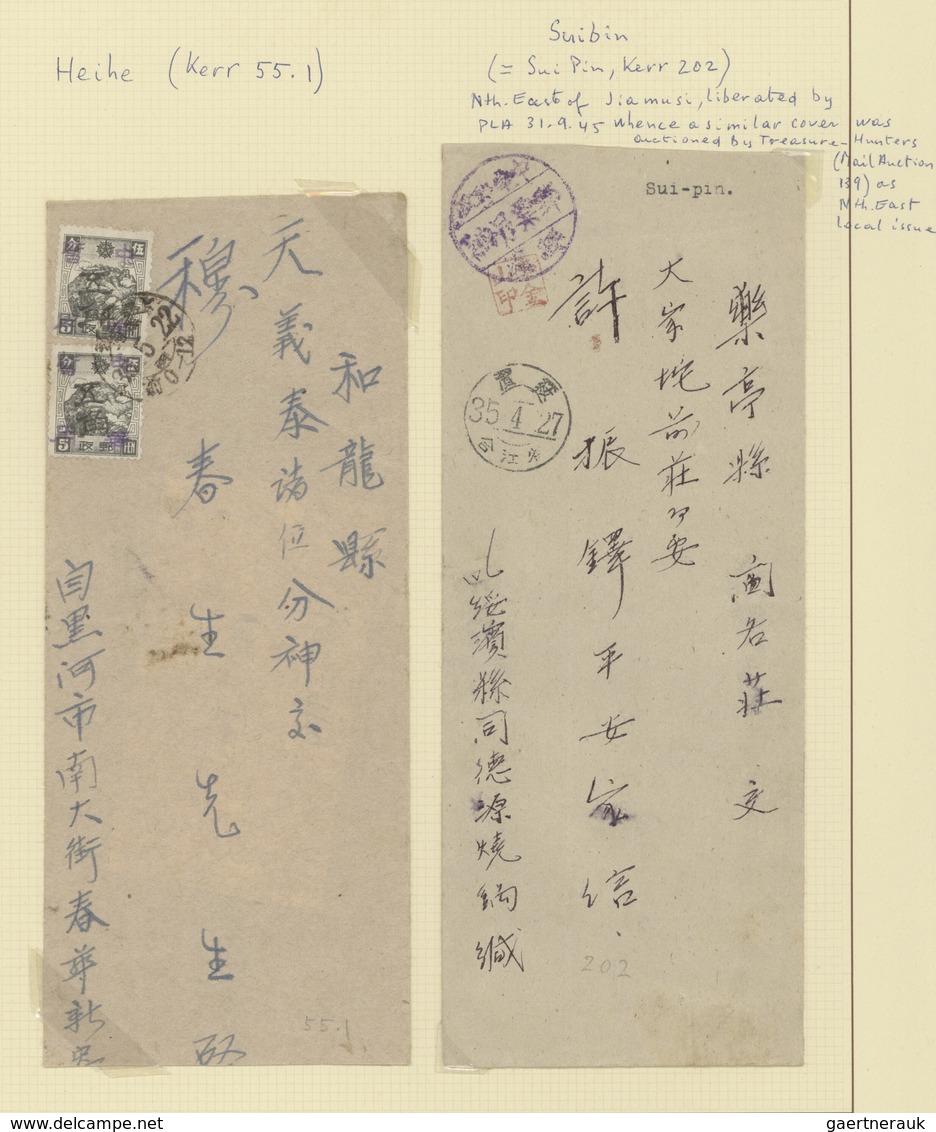 Heihe (Kerr 55.1)
Suibin
(= Sui Pin, Kerr 202)
Nth. East of Jiamusi, liberated by
PLA 31.9.45 whence a similar cover was
auctioned by Treasure-Hunters
(Mail Auction
139) as
Nth. East
local issue
和龍縣
天義泰諸位分神交
穆春生先生
自黑河市南大街春華新
5
5
5 22
0-12
55.1
Sui-pin.
樂亭縣
莊交
大家坨前莊
許振鐸平安家信
綏濱縣同德源燒鍋緘
35 4 27
合江
金
印
202
gaertnerauk